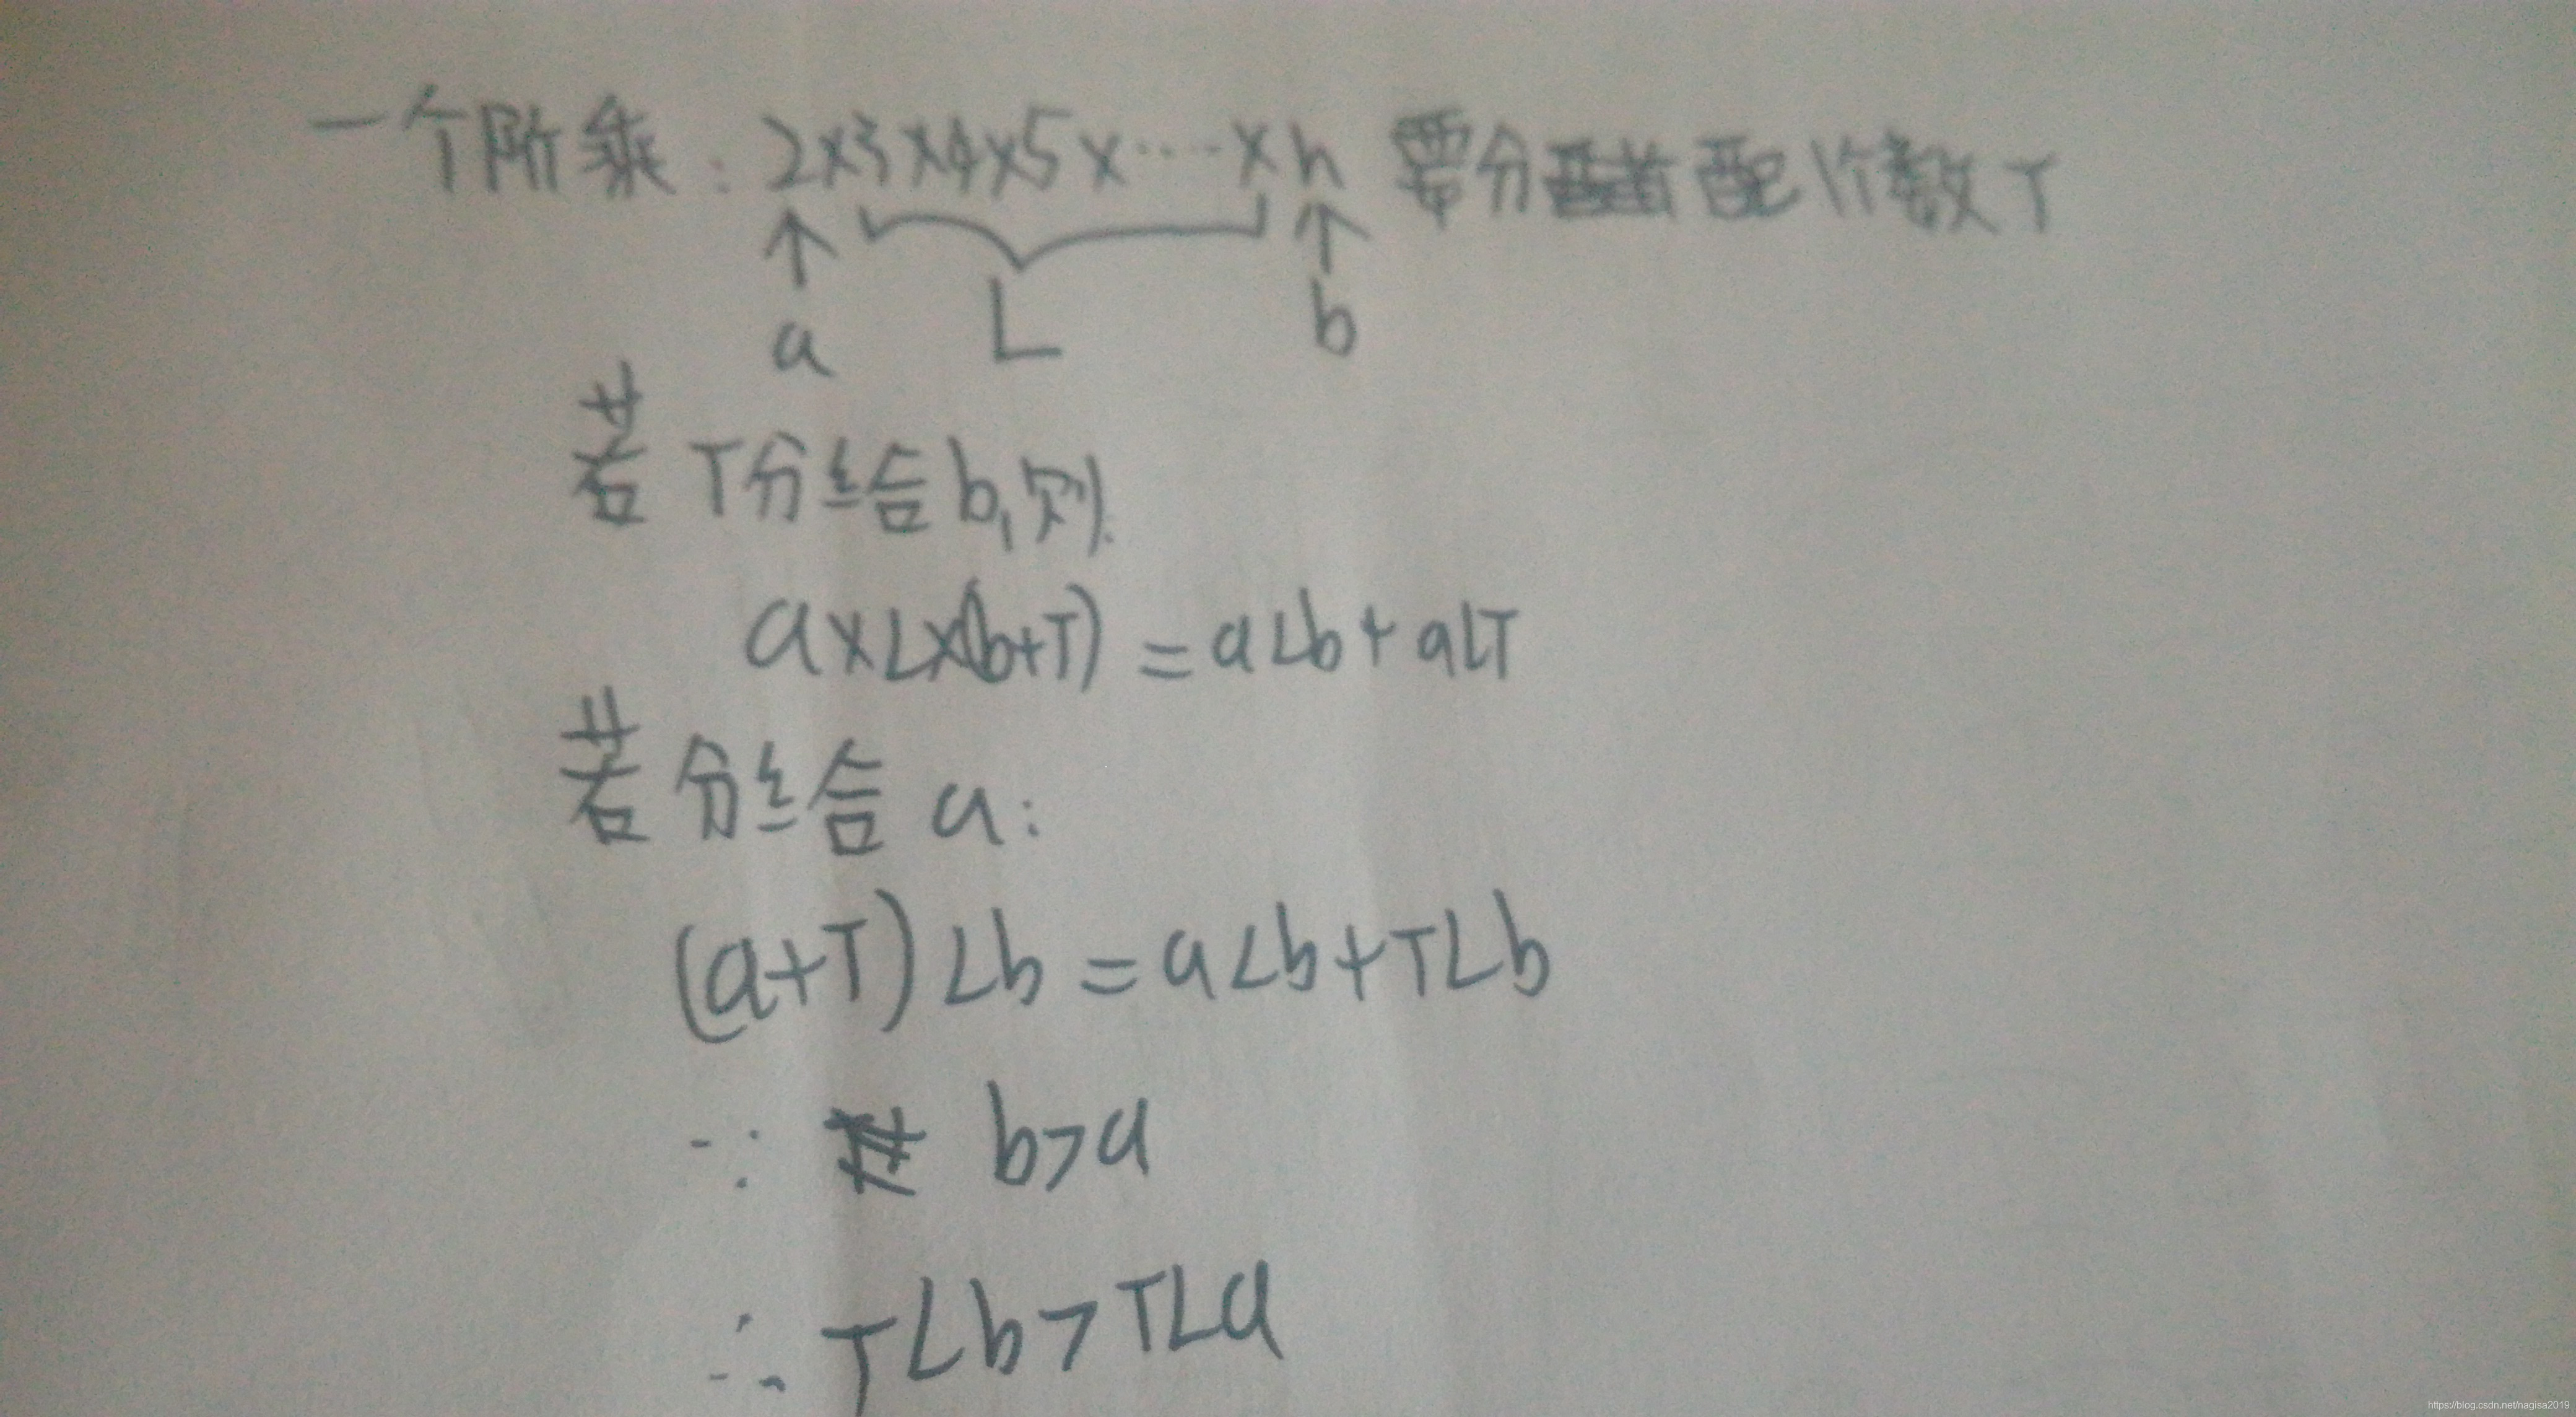 一个阶乘：2×3×4×5×·····×n 要分配1个数T
a L b
若T分给b,则:
a×L×(b+T)=aLb+aLT
若分给a:
(a+T)Lb=aLb+TLb
∵ b>a
∴ TLb>TLa
https://blog.csdn.net/nagisa2019